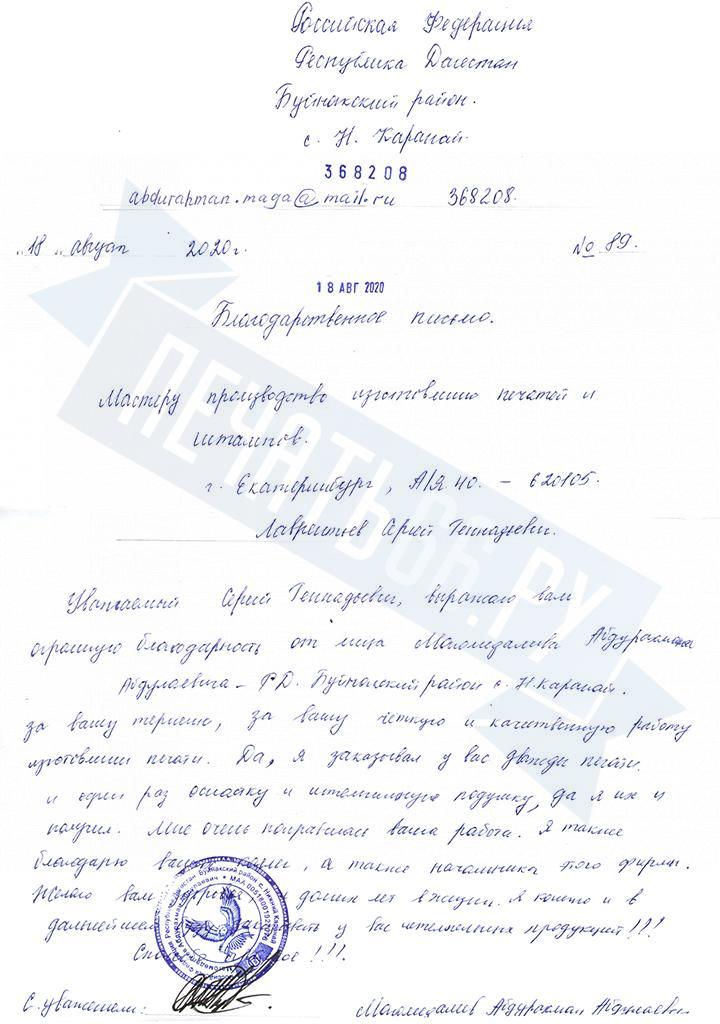 Российская Федерация
Республика Дагестан
Буйнакский район.
с. Н. Каранай
368208
abdurahman.maga@mail.ru 368208.
"18" август 2020г. № 89.
18 АВГ 2020
Благодарственное письмо.
Мастеру производство изготовлению печатей и
штампов.
г. Екатеринбург, А/Я 40. – 620105.
Лаврентьев Сергей Геннадьевич.
Уважаемый Сергей Геннадьевич, выражаю вам
огромную благодарность от лица Магомедалиева Абдурахмана
Абдулаевича – РД. Буйнакский район с. Н. Каранай.
за вашу терпению, за вашу четкую и качественную работу
изготовлении печати. Да, я заказывал у вас дважды печати
и один раз оснастку и штемпельную подушку, да я их и
получил. Мне очень понравилась ваша работа. Я также
благодарю , а также начальника того фирмы.
Желаю вам долгих лет в жизни. Я конечно и в
дальнейшем у вас продукций!!!
!!!.
С уважением: Магомедалиев Абдурахман Абдулаевич
ПЕЧАТЬ06.РУ